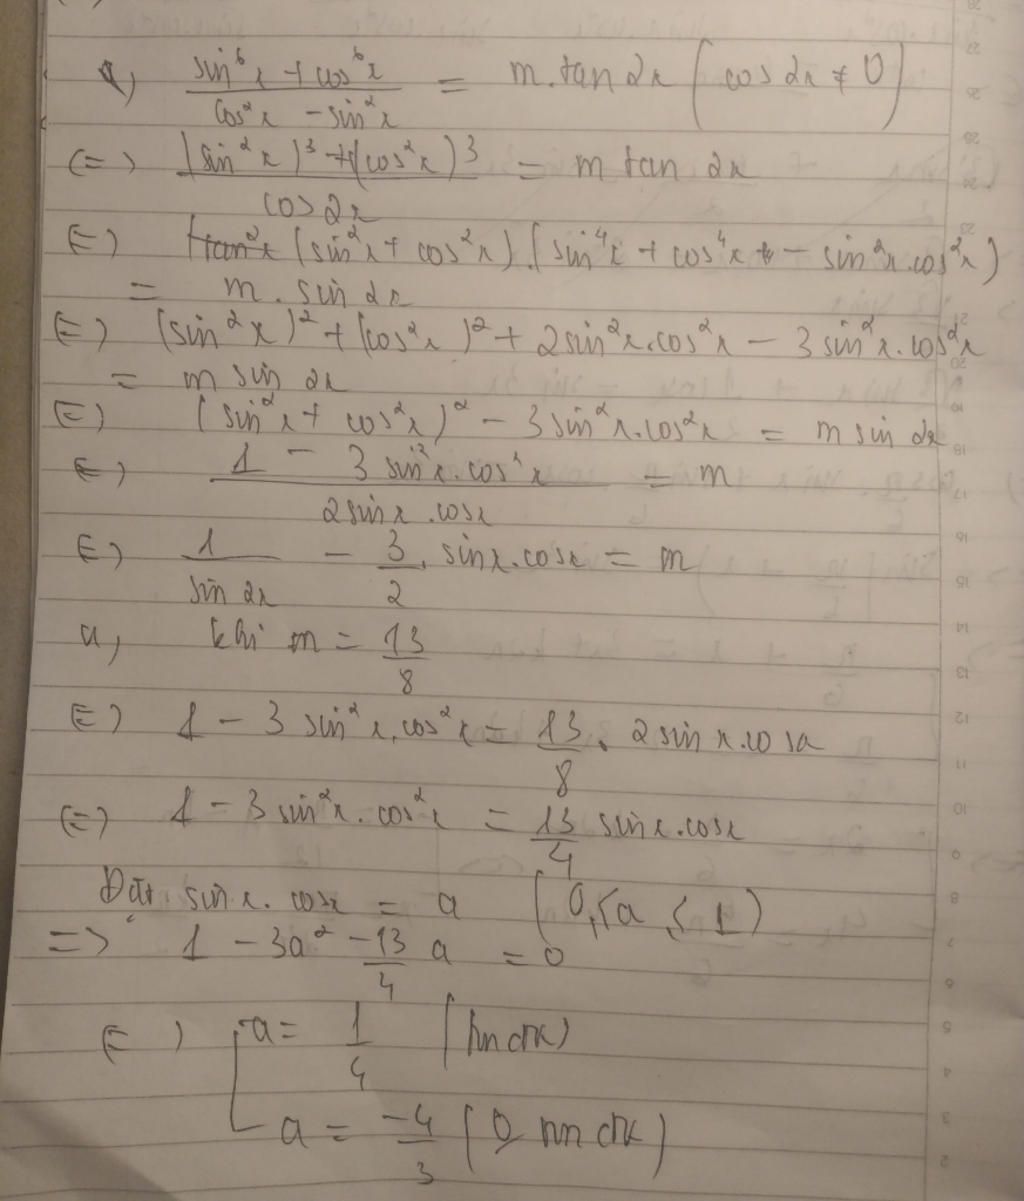 a, (sin⁶x + cos⁶x)/(cos²x - sin²x) = m.tan2x (cos2x ≠ 0)
(=) ((sin²x)³ + (cos²x)³)/(cos2x) = m tan 2x
(=) (sin²x + cos²x).(sin⁴x + cos⁴x - sin²x.cos²x)
= m. sin 2x
(=) (sin²x)² + (cos²x)² + 2sin²x.cos²x - 3sin²x.cos²x
= m sin 2x
(=) (sin²x + cos²x)² - 3sin²x.cos²x = m sin 2x
(=) (1 - 3 sin²x.cos²x)/(2sinx.cosx) = m
(=) 1/(sin 2x) - 3/2. sinx.cosx = m
a, khi m = 13/8
(=) 1 - 3 sin²x.cos²x = 13/8. 2sin x.cosx
(=) 1 - 3sin²x.cos²x = 13/4 sinx.cosx
Đặt sin x. cosx = a (0 ≤ a ≤ 1)
=> 1 - 3a² - 13/4 a = 0
(=) [ a = 1/4 (tm đk)
a = -4/3 (0 tm đk)